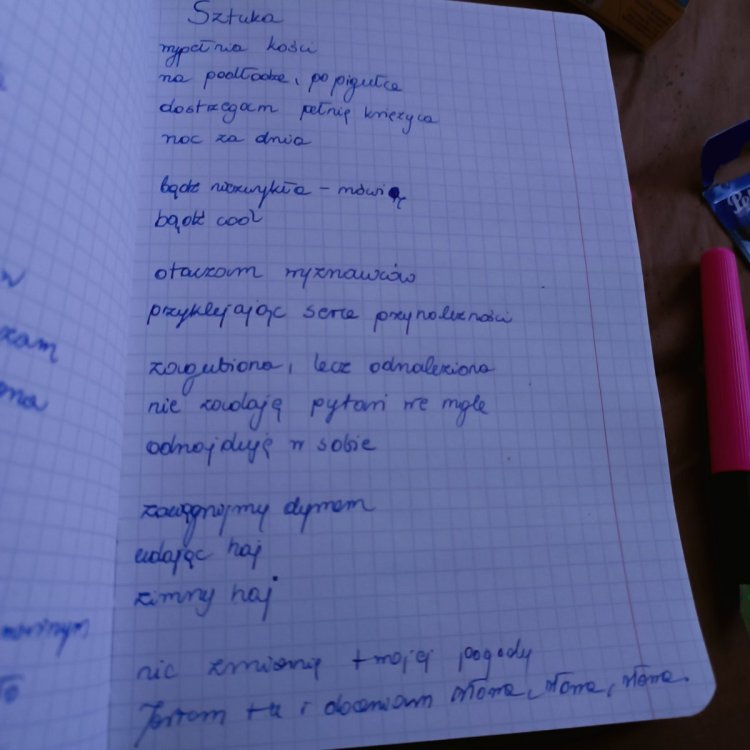 Sztuka
wypełnia kości
na podłodze, po pigułce
dostrzegam pełnię księżyca
noc za dnia
bądź niezwykła - mówię
bądź cool
otaczam wyznawców
przyklejając serce przynależności
zagubiona, lecz odnaleziona
nie zadają pytań we mgle
odnajduję w sobie
dymem
udając haj
zimny haj
nic zmienię twojej pogody
Jestem tu i doceniam